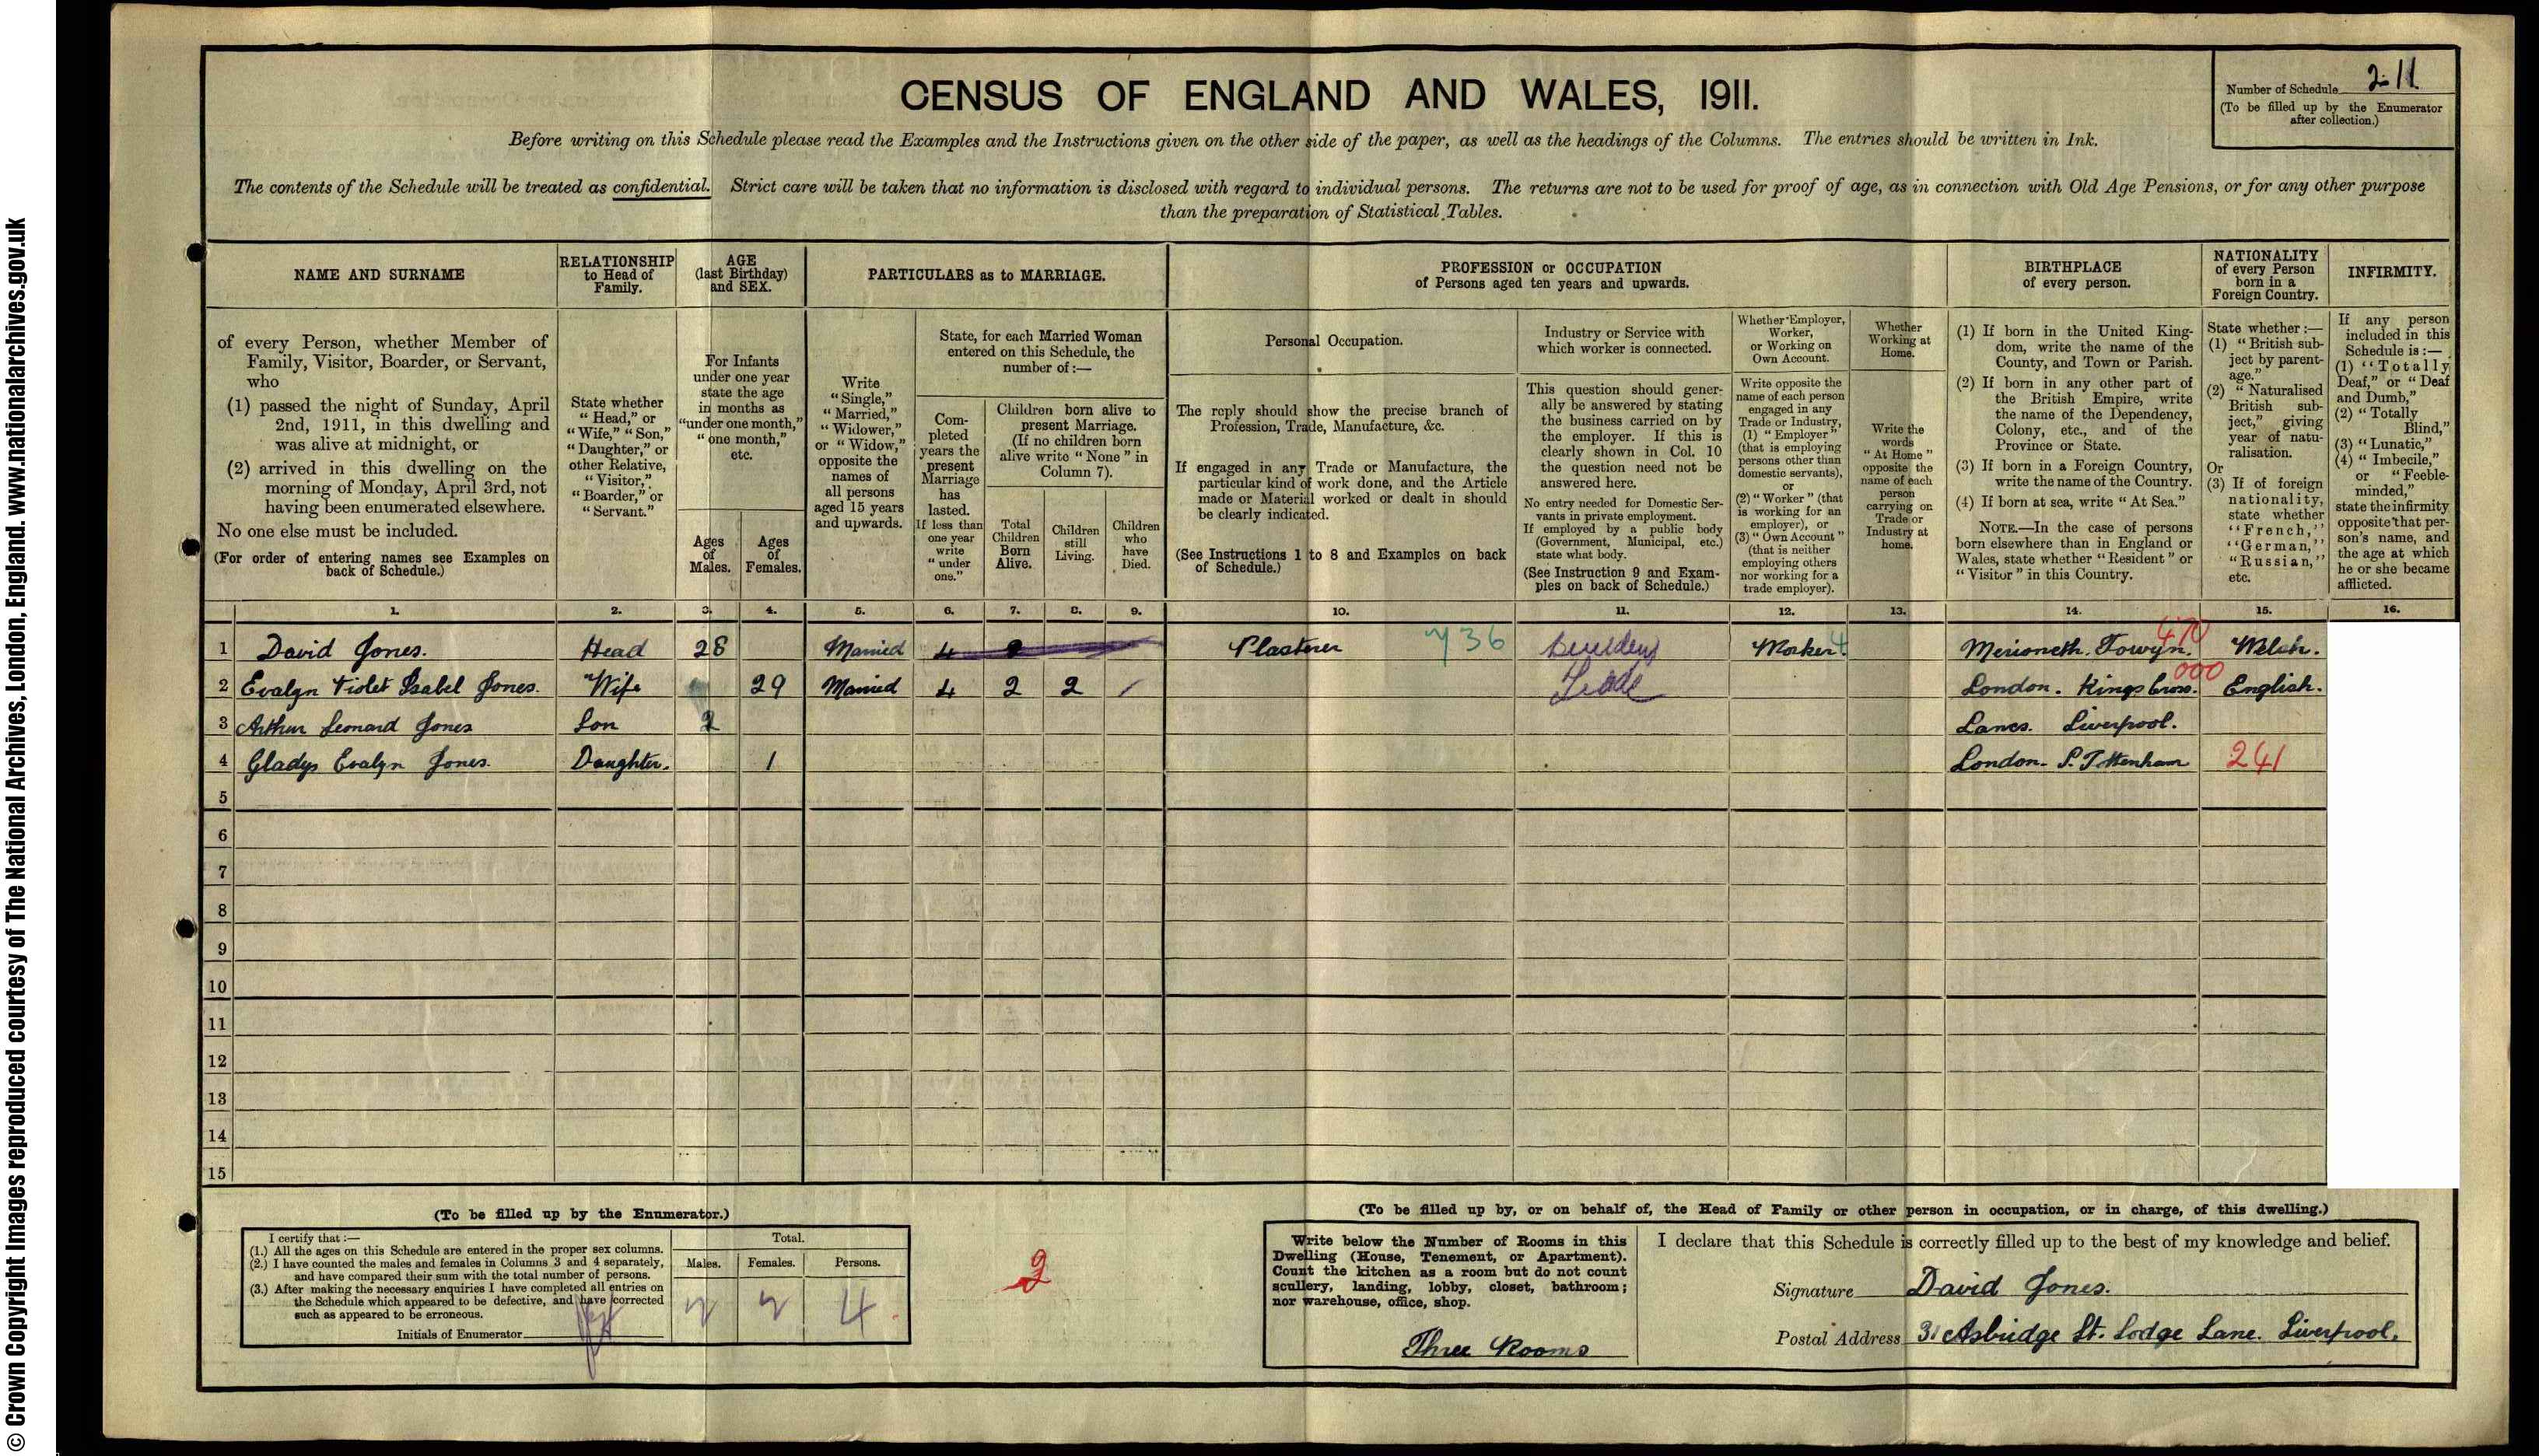 © Crown Copyright Images reproduced courtesy of The National Archives, London, England. www.nationalarchives.gov.uk
CENSUS OF ENGLAND AND WALES, 1911.
Number of Schedule 211
(To be filled up by the Enumerator
after collection.)
Before writing on this Schedule please read the Examples and the Instructions given on the other side of the paper, as well as the headings of the Columns. The entries should be written in Ink.
The contents of the Schedule will be treated as confidential. Strict care will be taken that no information is disclosed with regard to individual persons. The returns are not to be used for proof of age, as in connection with Old Age Pensions, or for any other purpose
than the preparation of Statistical Tables.
NAME AND SURNAME
of every Person, whether Member of
Family, Visitor, Boarder, or Servant,
who
(1) passed the night of Sunday, April
2nd, 1911, in this dwelling and
was alive at midnight, or
(2) arrived in this dwelling on the
morning of Monday, April 3rd, not
having been enumerated elsewhere.
No one else must be included.
(For order of entering names see Examples on
back of Schedule.)
RELATIONSHIP
to Head of
Family.
State whether
"Head," or
"Wife," "Son,"
"Daughter," or
other Relative,
"Visitor,"
"Boarder," or
"Servant."
AGE
(last Birthday)
and SEX.
For Infants
under one year
state the age
in months as
"under one month,"
"one month,"
etc.
Ages
of
Males.
Ages
of
Females.
PARTICULARS as to MARRIAGE.
Write
"Single,"
"Married,"
"Widower,"
or "Widow,"
opposite the
names of
all persons
aged 15 years
and upwards.
State, for each Married Woman
entered on this Schedule, the
number of:—
Com-
pleted
years the
present
Marriage
has
lasted.
If less than
one year
write
"under
one."
Children born alive to
present Marriage.
(If no children born
alive write "None" in
Column 7).
Total
Children
Born
Alive.
Children
still
Living.
Children
who
have
Died.
PROFESSION or OCCUPATION
of Persons aged ten years and upwards.
Personal Occupation.
The reply should show the precise branch of
Profession, Trade, Manufacture, &c.
If engaged in any Trade or Manufacture, the
particular kind of work done, and the Article
made or Material worked or dealt in should
be clearly indicated.
(See Instructions 1 to 8 and Examples on back
of Schedule.)
Industry or Service with
which worker is connected.
This question should gener-
ally be answered by stating
the business carried on by
the employer. If this is
clearly shown in Col. 10
the question need not be
answered here.
No entry needed for Domestic Ser-
vants in private employment.
If employed by a public body
(Government, Municipal, etc.)
state what body.
(See Instruction 9 and Exam-
ples on back of Schedule.)
Whether Employer,
Worker,
or Working on
Own Account.
Write opposite the
name of each person
engaged in any
Trade or Industry,
(1) "Employer"
(that is employing
persons other than
domestic servants),
or
(2) "Worker" (that
is working for an
employer), or
(3) "Own Account"
(that is neither
employing others
nor working for a
trade employer).
Whether
Working at
Home.
Write the
words
"At Home"
opposite the
name of each
person
carrying on
Trade or
Industry at
home.
BIRTHPLACE
of every person.
(1) If born in the United King-
dom, write the name of the
County, and Town or Parish.
(2) If born in any other part of
the British Empire, write
the name of the Dependency,
Colony, etc., and of the
Province or State.
(3) If born in a Foreign Country,
write the name of the Country.
(4) If born at sea, write "At Sea."
NOTE.—In the case of persons
born elsewhere than in England or
Wales, state whether "Resident" or
"Visitor" in this Country.
NATIONALITY
of every Person
born in a
Foreign Country.
State whether :—
(1) "British sub-
ject by parent-
age."
(2) "Naturalised
British sub-
ject," giving
year of natu-
ralisation.
Or
(3) If of foreign
nationality,
state whether
"French,"
"German,"
"Russian,"
etc.
INFIRMITY.
If any person
included in this
Schedule is:—
(1) "Totally
Deaf," or "Deaf
and Dumb,"
(2) "Totally
Blind,"
(3) "Lunatic,"
(4) "Imbecile,"
or "Feeble-
minded,"
state the infirmity
opposite that per-
son's name, and
the age at which
he or she became
afflicted.
1. 2. 3. 4. 5. 6. 7. 8. 9. 10. 11. 12. 13. 14. 15. 16.
1 David Jones. Head 28 Married 4 Plasterer 736 Building Worker. Merioneth. Towyn. 470 Welsh.
2 Evalyn Violet Isabel Jones. Wife 29 Married 4 2 2 Trade London. Kings Cross. 000 English.
3 Arthur Leonard Jones Son 2 Lancs. Liverpool.
4 Gladys Evalyn Jones. Daughter. 1 London. S. Tottenham 241
5
6
7
8
9
10
11
12
13
14
15
(To be filled up by the Enumerator.)
I certify that :—
(1.) All the ages on this Schedule are entered in the proper sex columns.
(2.) I have counted the males and females in Columns 3 and 4 separately,
and have compared their sum with the total number of persons.
(3.) After making the necessary enquiries I have completed all entries on
the Schedule which appeared to be defective, and have corrected
such as appeared to be erroneous.
Initials of Enumerator
Total.
Males. Females. Persons.
2 2 4
(To be filled up by, or on behalf of, the Head of Family or other person in occupation, or in charge, of this dwelling.)
Write below the Number of Rooms in this
Dwelling (House, Tenement, or Apartment).
Count the kitchen as a room but do not count
scullery, landing, lobby, closet, bathroom;
nor warehouse, office, shop.
Three Rooms
I declare that this Schedule is correctly filled up to the best of my knowledge and belief.
Signature David Jones.
Postal Address 31 Asbridge St. Lodge Lane. Liverpool.